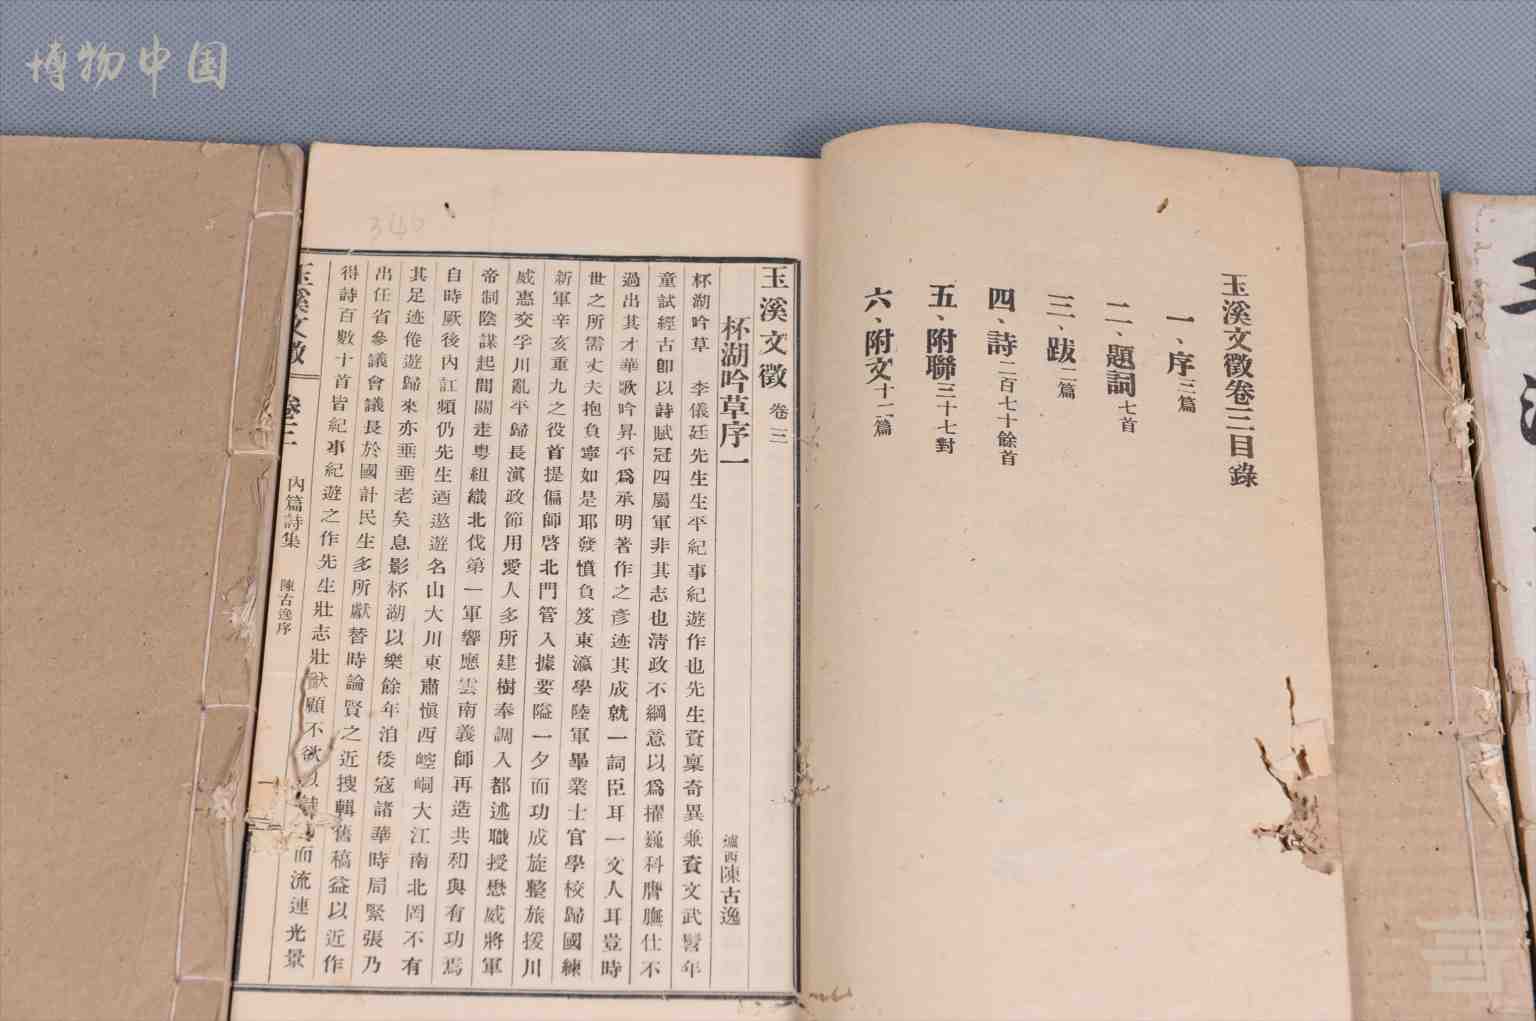 博物中国
玉溪文徵卷三目錄
一、序 三篇
二、題詞 七首
三、跋 二篇
四、詩 二百七十餘首
五、附聯 三十七對
六、附文 十二篇
玉溪文徵 卷三
杯湖吟草序一 瀘西陳古逸
杯湖吟草 李儀廷先生生平紀事紀遊作也先生資稟奇異兼資文武髫年
童試經古卽以詩賦冠四屬軍非其志也淸政不綱意以爲擢巍科膺膴仕不
過出其才華歌吟昇平爲承明著作之彥迹其成就一詞臣耳一文人耳豈時
世之所需丈夫抱負寧如是耶發憤負笈東瀛學陸軍畢業士官學校歸國練
新軍辛亥重九之役首提偏師啓北門管入據要隘一夕而功成旋整旅援川
威惠交孚川亂平歸長滇政節用愛人多所建樹奉調入都述職授懋威將軍
帝制陰謀起間關走粤組織北伐第一軍響應雲南義師再造共和與有功焉
自時厥後內訌頻仍先生迺遨遊名山大川東肅愼西崆峒大江南北罔不有
其足迹倦遊歸來亦垂垂老矣息影杯湖以樂餘年洎倭寇諸華時局緊張乃
出任省參議會議長於國計民生多所獻替時論賢之近搜輯舊稿益以近作
得詩百數十首皆紀事紀遊之作先生壯志壯猷顧不欲以詩而流連光景
玉溪文徵 卷三 內篇詩集 陳古逸序
346